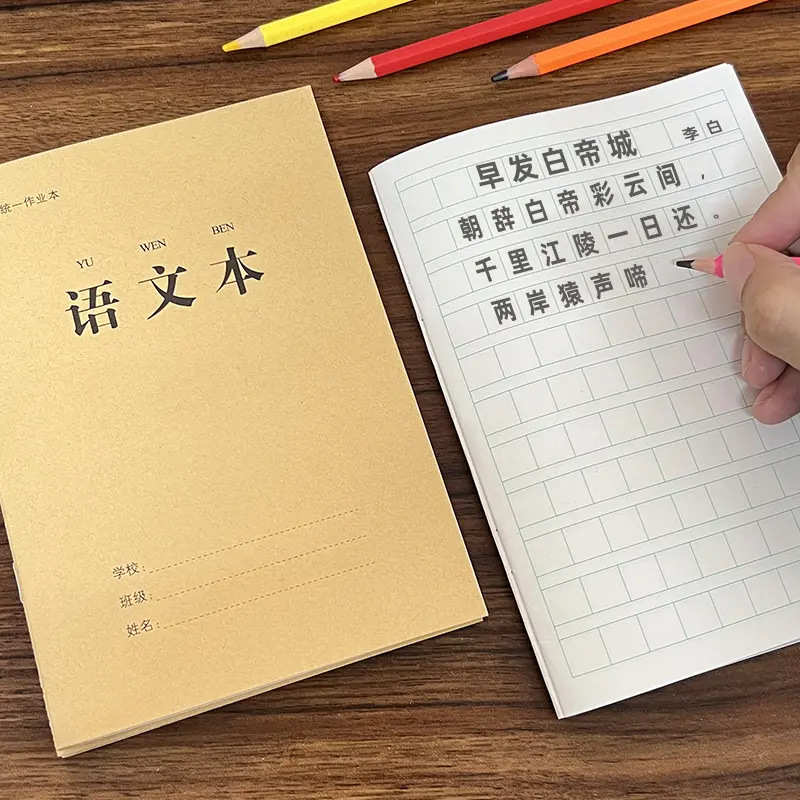 统一作业本
YU WEN BEN
语文本
学校:
班级:
姓名:
早发白帝城
李白
朝辞白帝彩云间,
千里江陵一日还。
两岸猿声啼